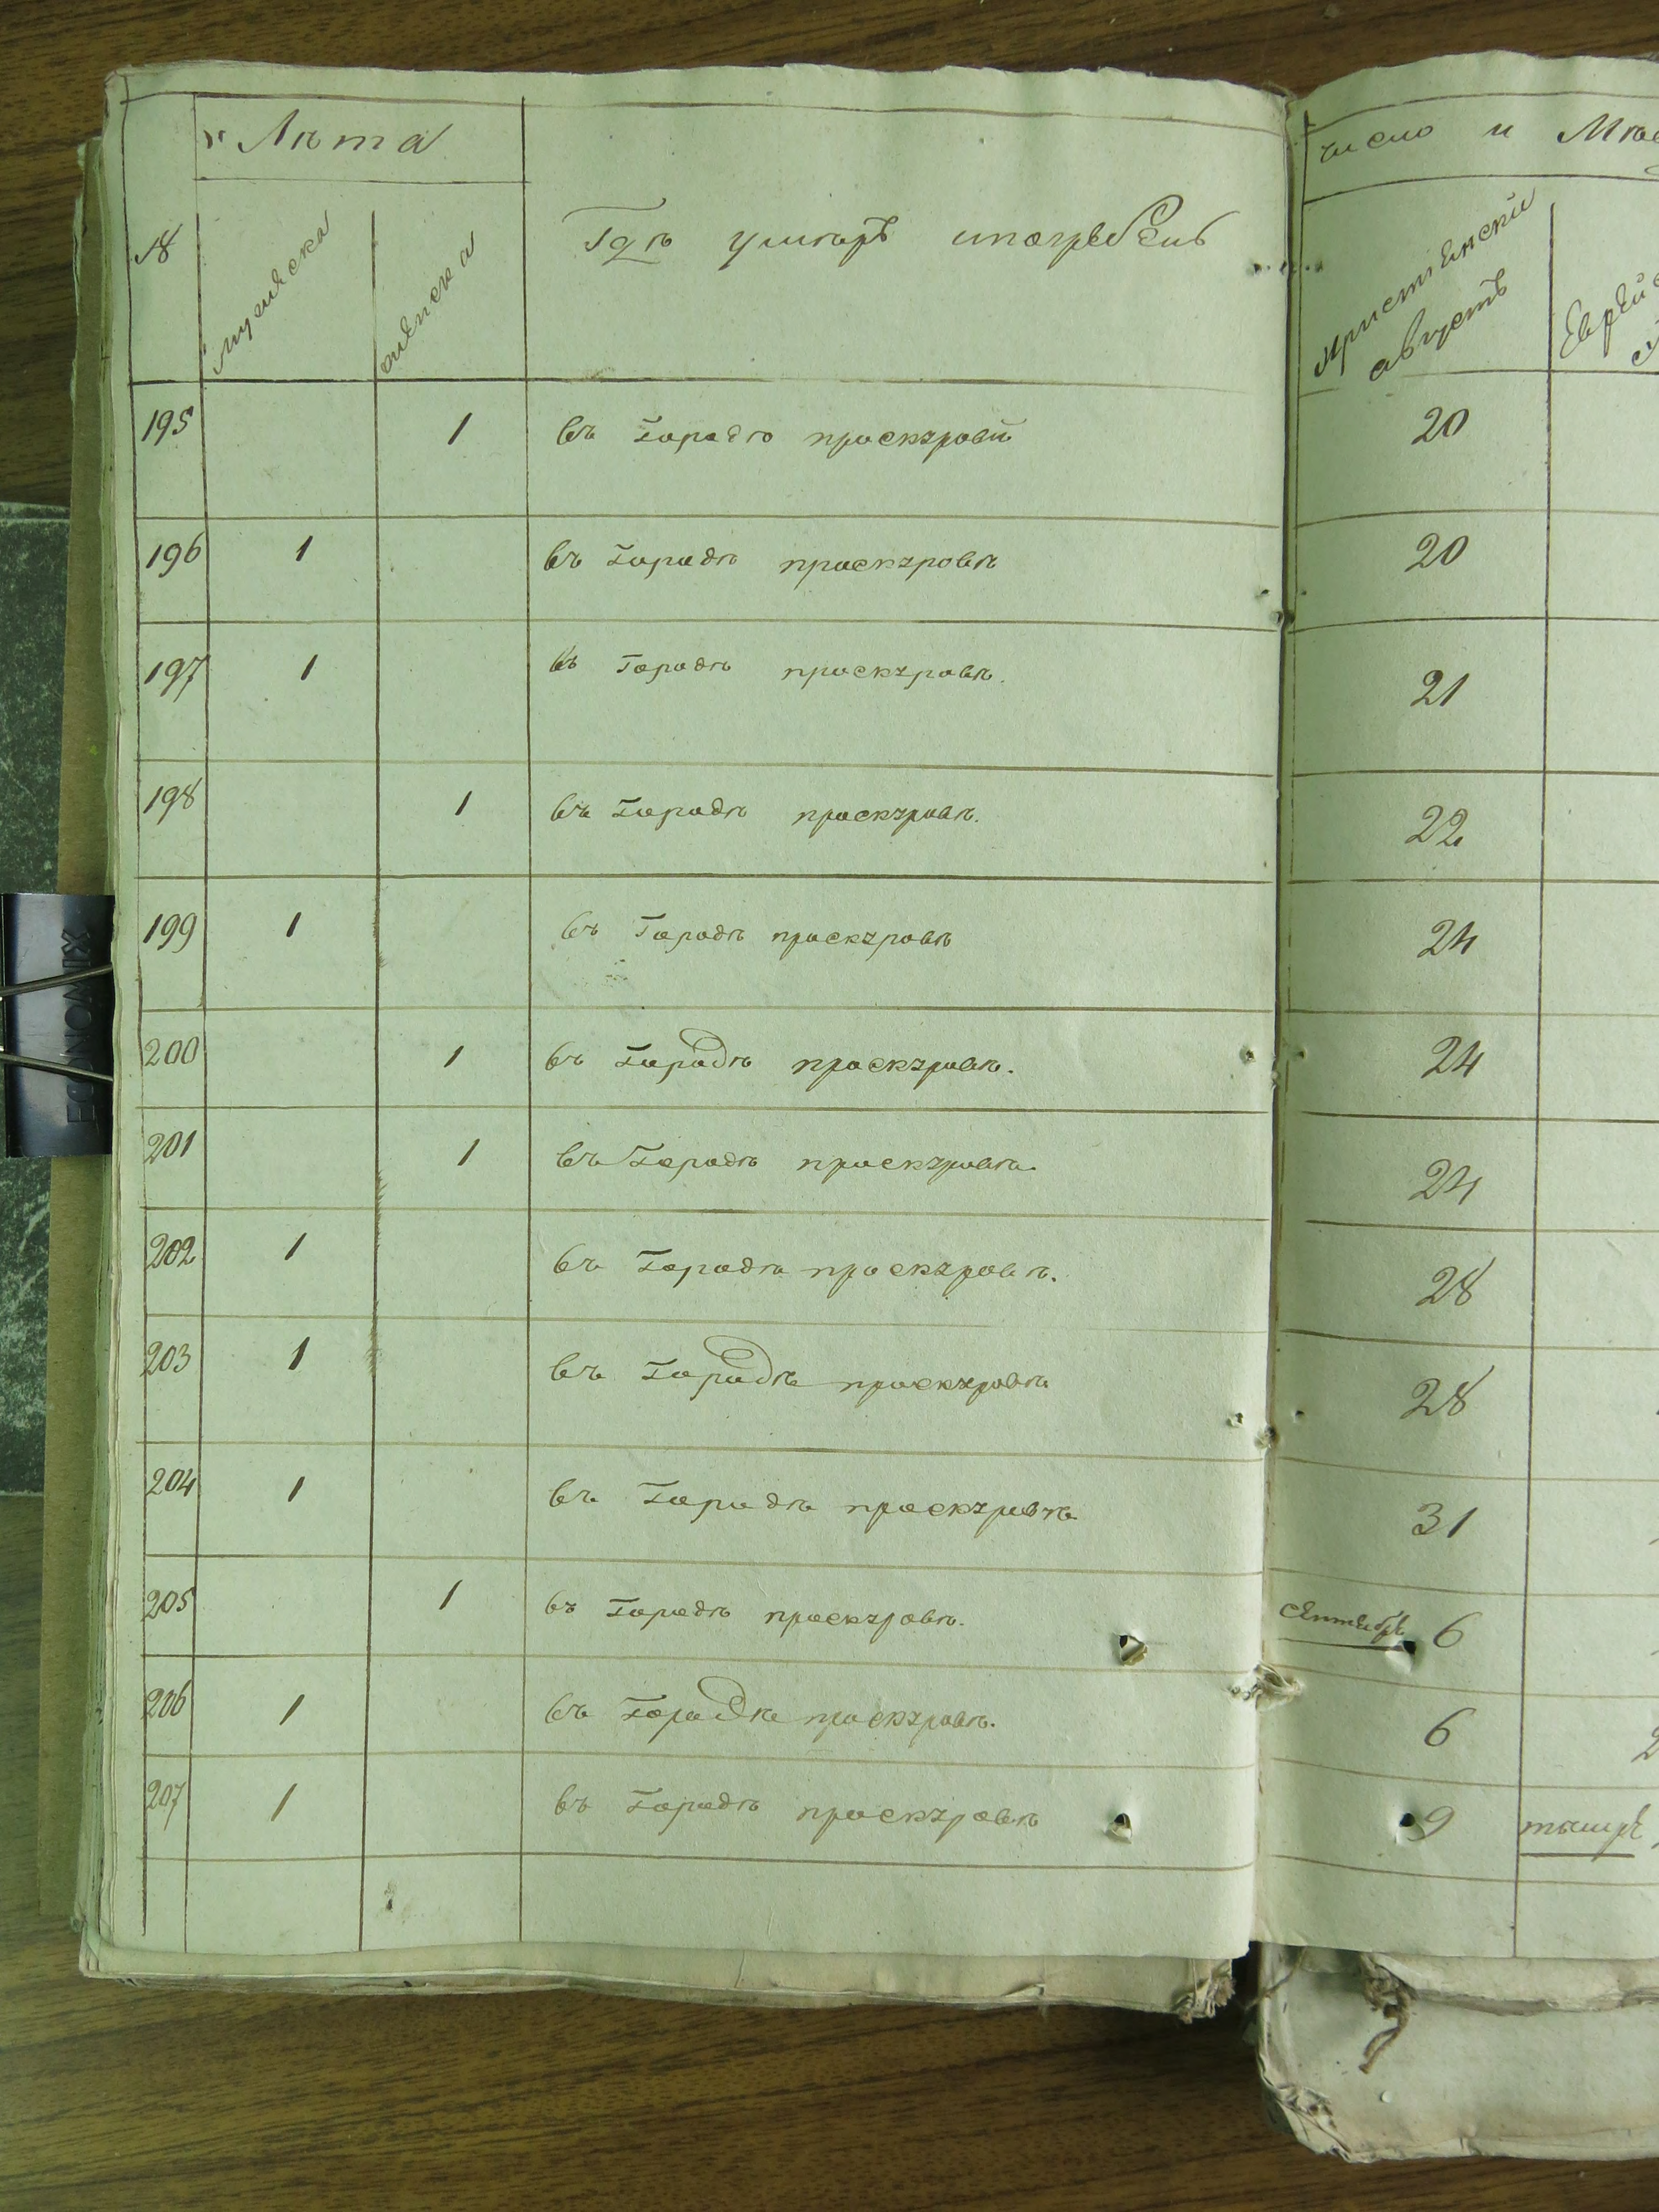 Лѣта
№ мужеска женска Гдѣ умѣръ ипогребенъ
число и Мѣс
христiянски августъ Еврей
195 1 въ Городѣ проскуровй 20
196 1 въ Городѣ проскуровѣ 20
197 1 въ Городѣ проскуровѣ. 21
198 1 въ Городѣ проскуровѣ. 22
199 1 въ Городѣ проскуровѣ 24
200 1 въ Городѣ проскуровѣ. 24
201 1 въ Городѣ проскуровѣ. 24
202 1 въ Городѣ проскуровѣ. 28
203 1 въ Городѣ проскуровѣ 28
204 1 въ Городѣ проскуровѣ 31
205 1 въ Городѣ проскуровѣ. сентебръ 6
206 1 въ Городѣ проскуровѣ. 6
207 1 въ Городѣ проскуровѣ 9 тышре
ECONOMIX